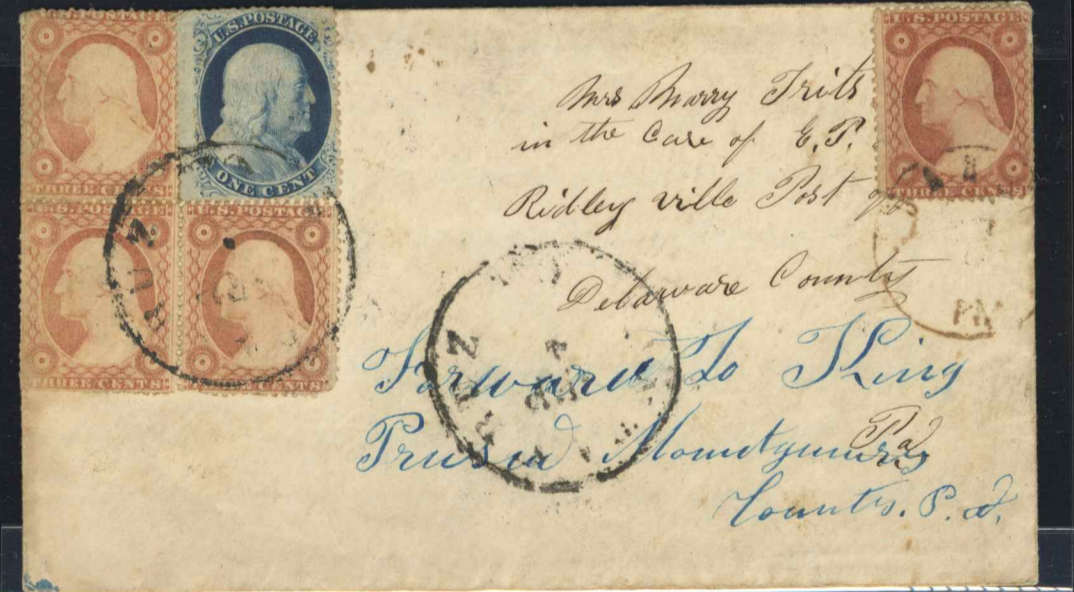 U.S. POSTAGE
THREE CENTS
U.S. POSTAGE
ONE CENT
U.S. POSTAGE
THREE CENTS
U.S. POSTAGE
THREE CENTS
U.S. POSTAGE
THREE CENTS
Mrs Marry Frits
in the Care of E. P.
Ridley ville Post
Delaware County
Pa
Forward To King
Prusia Mountgumry
County. P. a.